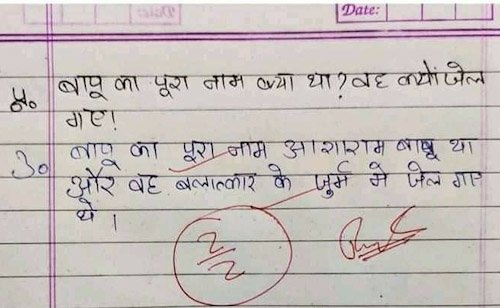 Date:
प्र० बापू का पूरा नाम क्या था? वह क्यों जेल
गए।
उ० बापू का पूरा नाम आशाराम बापू था
और वह बलात्कार के जुर्म मे जेल गए
थे।
2/2